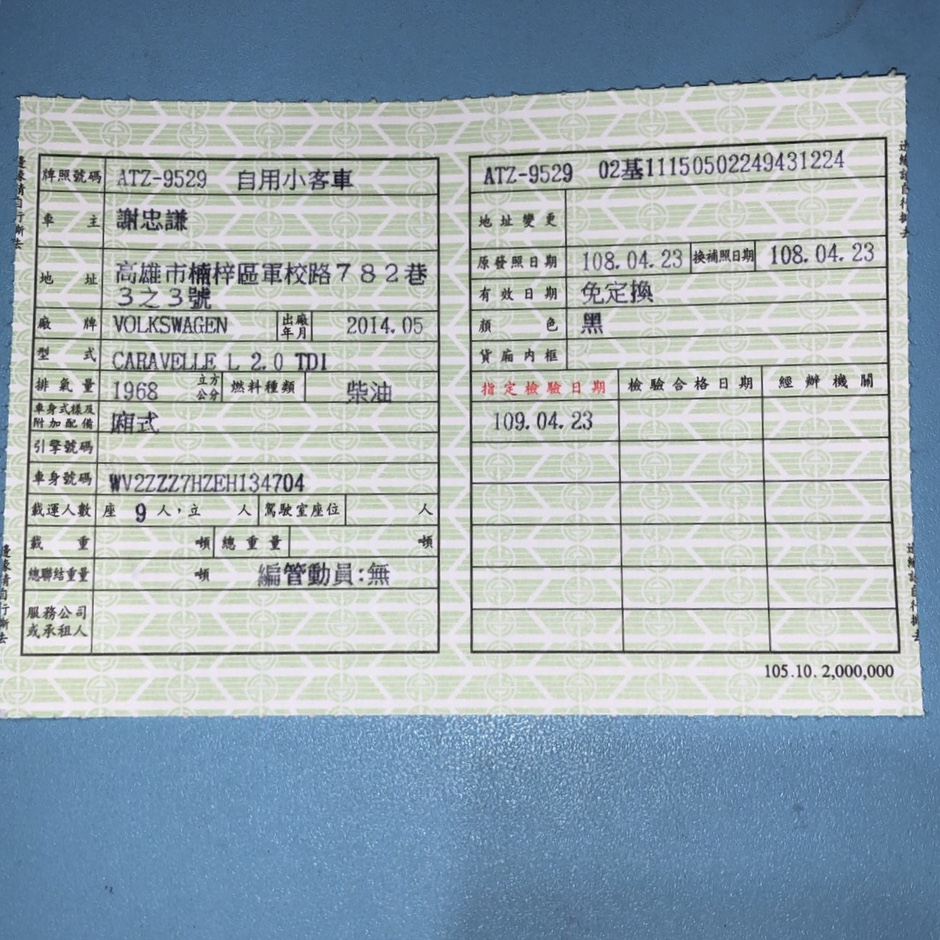 牌照號碼 ATZ-9529 自用小客車
車主 謝忠謙
地址 高雄市楠梓區軍校路７８２巷
３之３號
廠牌 VOLKSWAGEN 出廠年月 2014.05
型式 CARAVELLE L 2.0 TDI
排氣量 1968 立方公分 燃料種類 柴油
車身式樣及附加配備 廂式
引擎號碼
車身號碼 WV2ZZZ7HZEH134704
載運人數 座 9 人，立 人 駕駛室座位 人
載重 頓 總重量 頓
總聯結重量 頓 編管動員:無
服務公司
或承租人
ATZ-9529 02基11150502249431224
地址變更
原發照日期 108.04.23 換補照日期 108.04.23
有效日期 免定換
顏色 黑
貨廂內框
指定檢驗日期 檢驗合格日期 經辦機關
109.04.23
105.10. 2,000,000
邊緣請自行撕去
邊緣請自行撕去
邊緣請自行撕去
邊緣請自行撕去